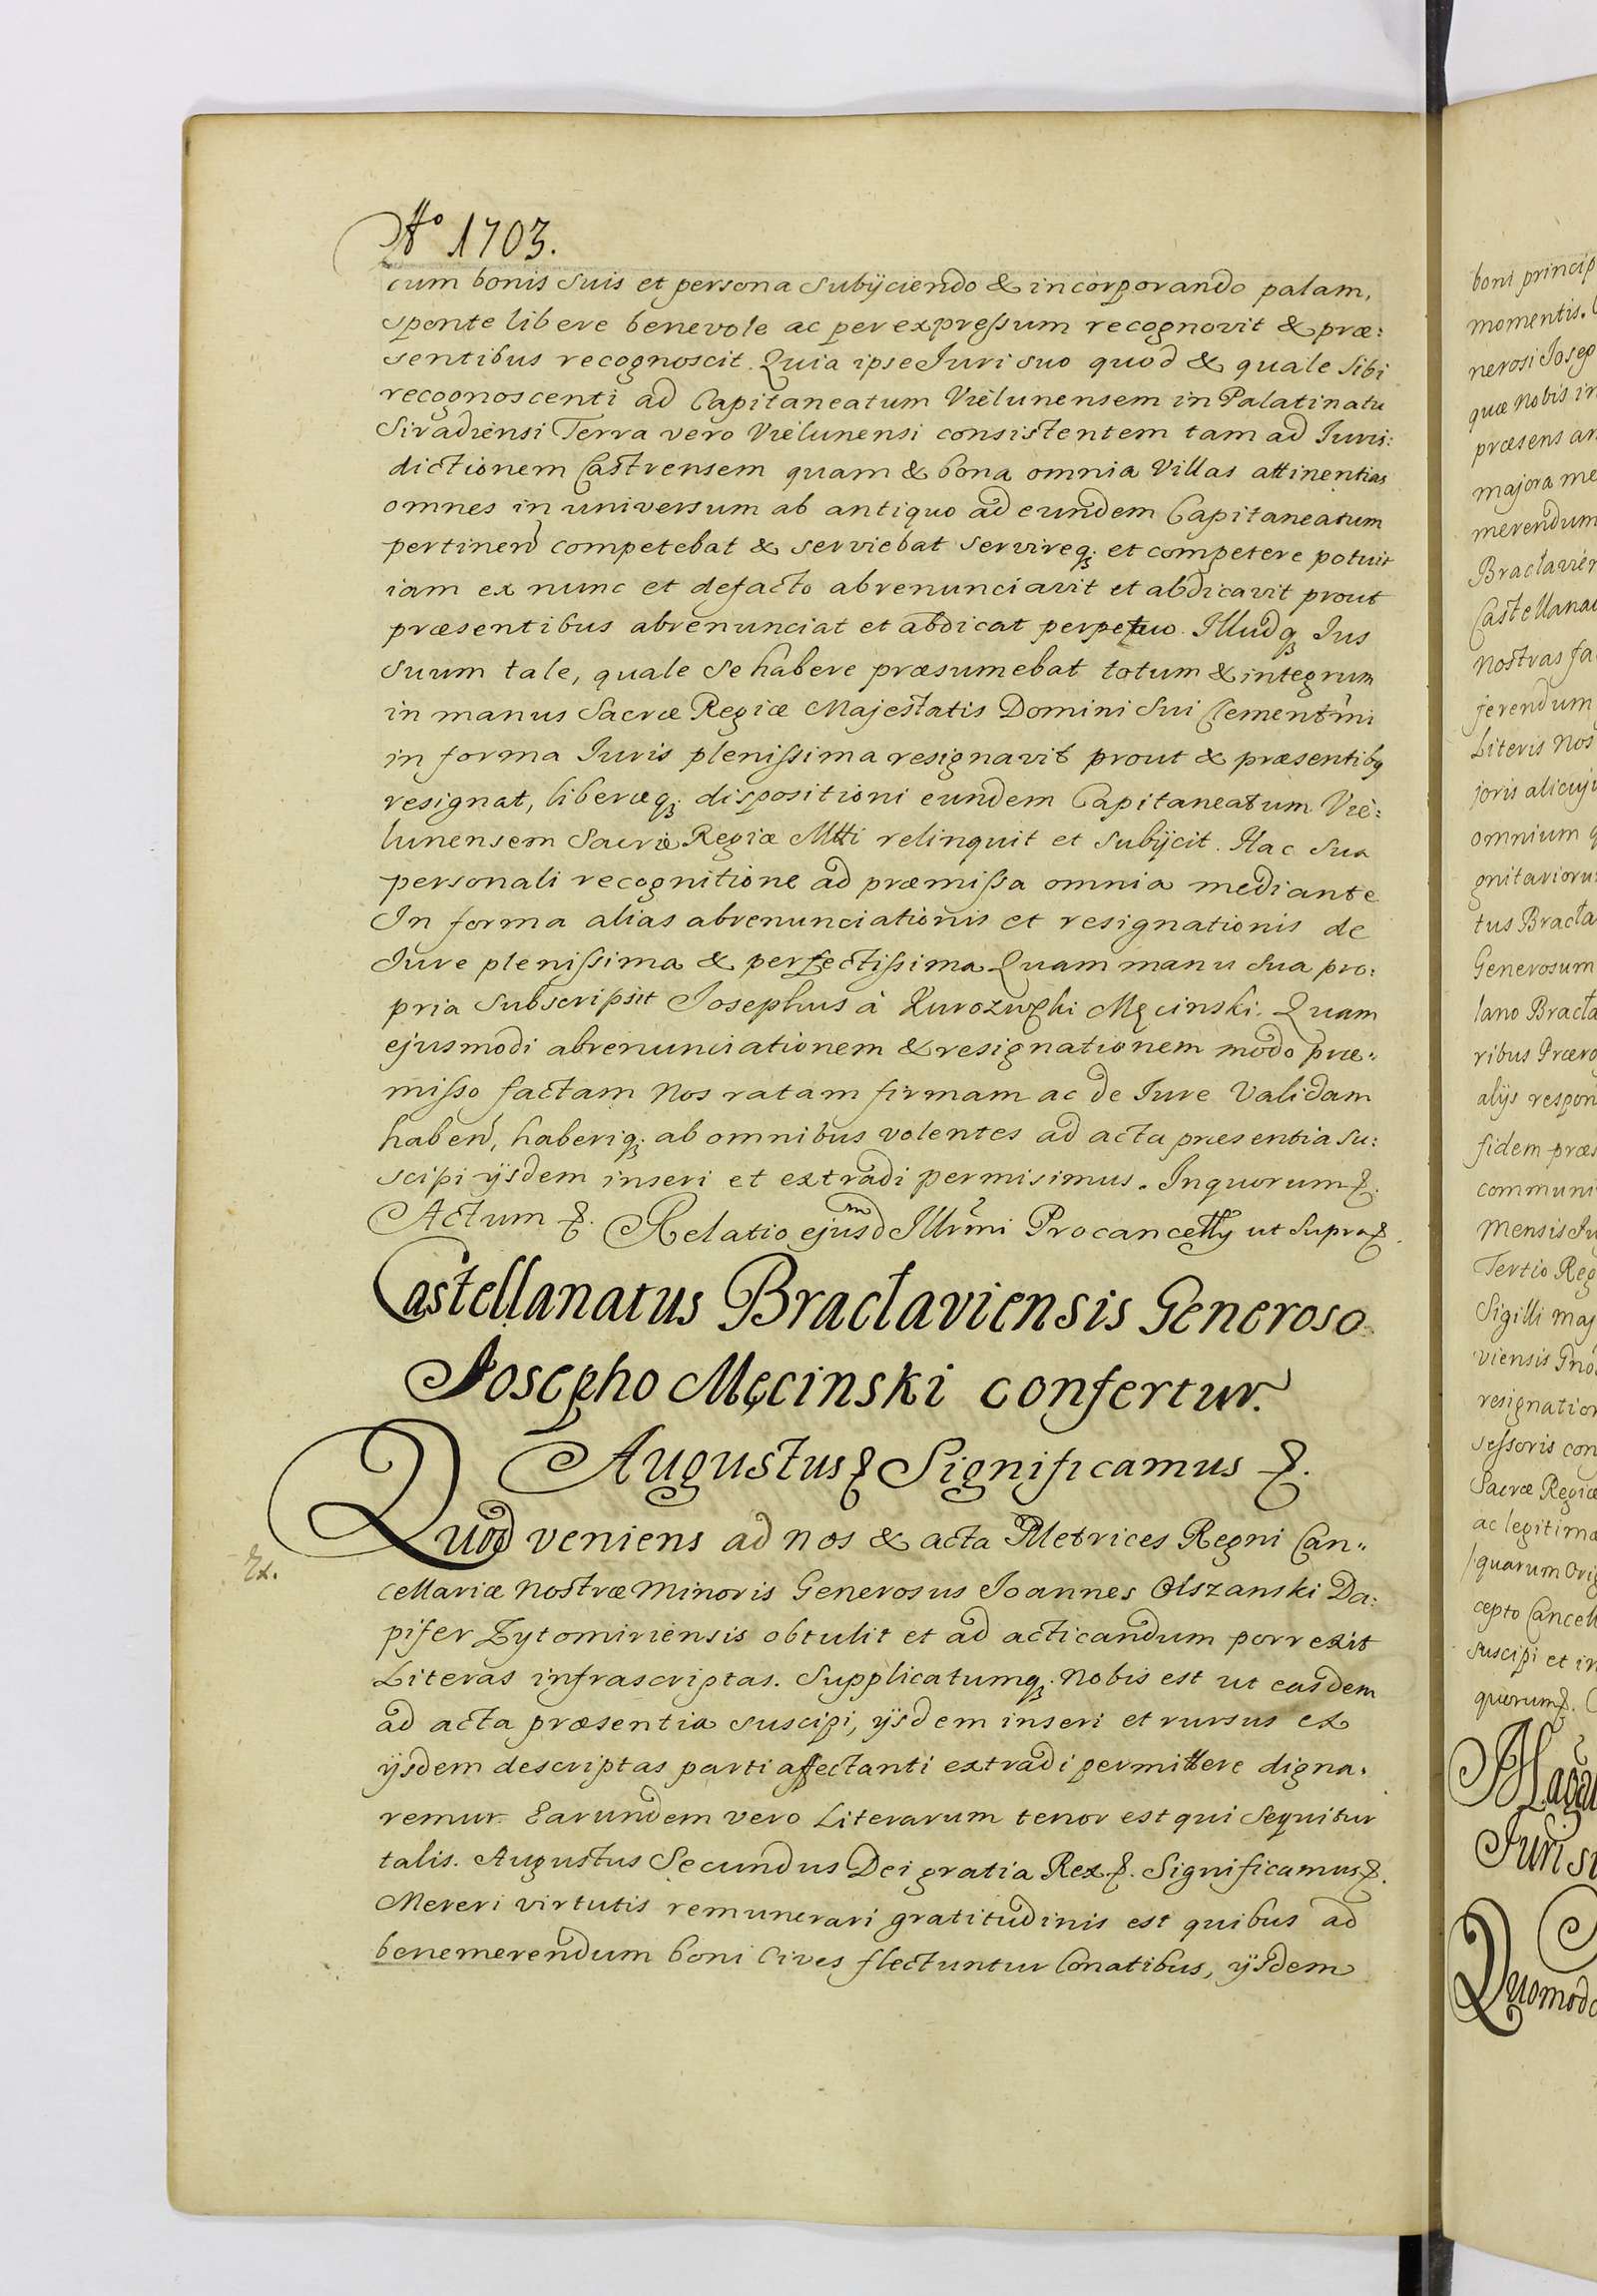 Aº 1703.
cum bonis suis et persona subijciendo & incorporando palam,
sponte libere benevole ac per expressum recognovit & præ:
sentibus recognoscit. Quia ipse Juri suo quod & quale sibi
recognoscenti ad Capitaneatum Vielunensem in Palatinatu
Siradiensi Terra vero Vielunensi consistentem tam ad Juris:
dictionem Castrensem quam & bona omnia Villas attinentias
omnes in universum ab antiquo ad eundem Capitaneatum
pertinen̄ competebat & serviebat servireq; et competere potuit
iam ex nunc et defacto abrenunciavit et abdicavit prout
præsentibus abrenunciat et abdicat perpetuo. Illudq; Jus
suum tale, quale se habere præsumebat totum & integrum
in manus Sacræ Regiæ Majestatis Domini sui Clementmi
in forma Juris plenissima resignavit prout & præsentibq
resignat, liberæq; dispositioni eundem Capitaneatum Vie:
lunensem Sacræ Regiæ Mtti relinquit et subijcit. Hac sua
personali recognitione ad præmissa omnia mediante
In forma alias abrenunciationis et resignationis de
Jure plenissima & perfectissima Quam manu sua pro:
pria subscripsit Josephus à Kurozwęki Męcinski. Quam
ejusmodi abrenunciationem & resignationem modo præ:
misso factam Nos ratam firmam ac de Jure Validam
haben̄, haberiq; ab omnibus volentes ad acta præsentia su:
scipi ijsdem inseri et extradi permisimus. In quorum &.
Actum &. Relatio ejusdm Illrmi Procancelly ut supra &.
Castellanatus Braclaviensis Generoso
Josepho Męcinski confertur.
Augustus & Significamus &.
Quod veniens ad nos & acta Metrices Regni Can:
Ex.
cellariæ nostræ Minoris Generosus Joannes Olszanski Da:
pifer Zytomiriensis obtulit et ad acticandum porrexit
Literas infrascriptas. Supplicatumq; Nobis est ut easdem
ad acta præsentia suscipi, ijsdem inseri et rursus ex
ijsdem descriptas parti affectanti extradi permittere digna:
remur. Earundem vero Literarum tenor est qui sequitur
talis. Augustus Secundus Dei gratia Rex &. Significamus &.
Mereri virtutis remunerari gratitudinis est quibus ad
benemerendum boni Cives flectuntur Conatibus, ijsdem
boni princip
momentis.
nerosi Josep
quæ Nobis in
præsens an
majora me
merendum
Braclavien
Castellana
Nostras fa
jerendum
Literis Nos
joris alicuju
omnium q
gnitarioru
tus Bracla
Generosum
lano Bracla
ribus Prærog
alijs respon
fidem præs
communi
Mensis Ju
Tertio Reg
Sigilli maj
viensis Gno
resignation
sessoris con
Sacræ Regiæ
ac legitima
quarum Orig
cepto Cancell
suscipi et in
quorum &.
Juri su
Quomodo